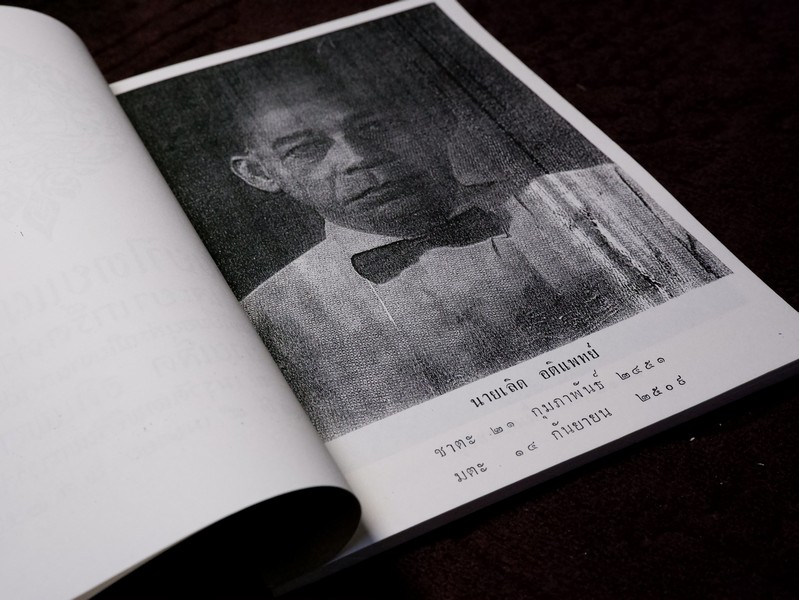 นายเลิด อติแพทย์
ชาตะ ๒๑ กุมภาพันธ์ ๒๔๕๑
มตะ ๑๔ กันยายน ๒๕๐๕